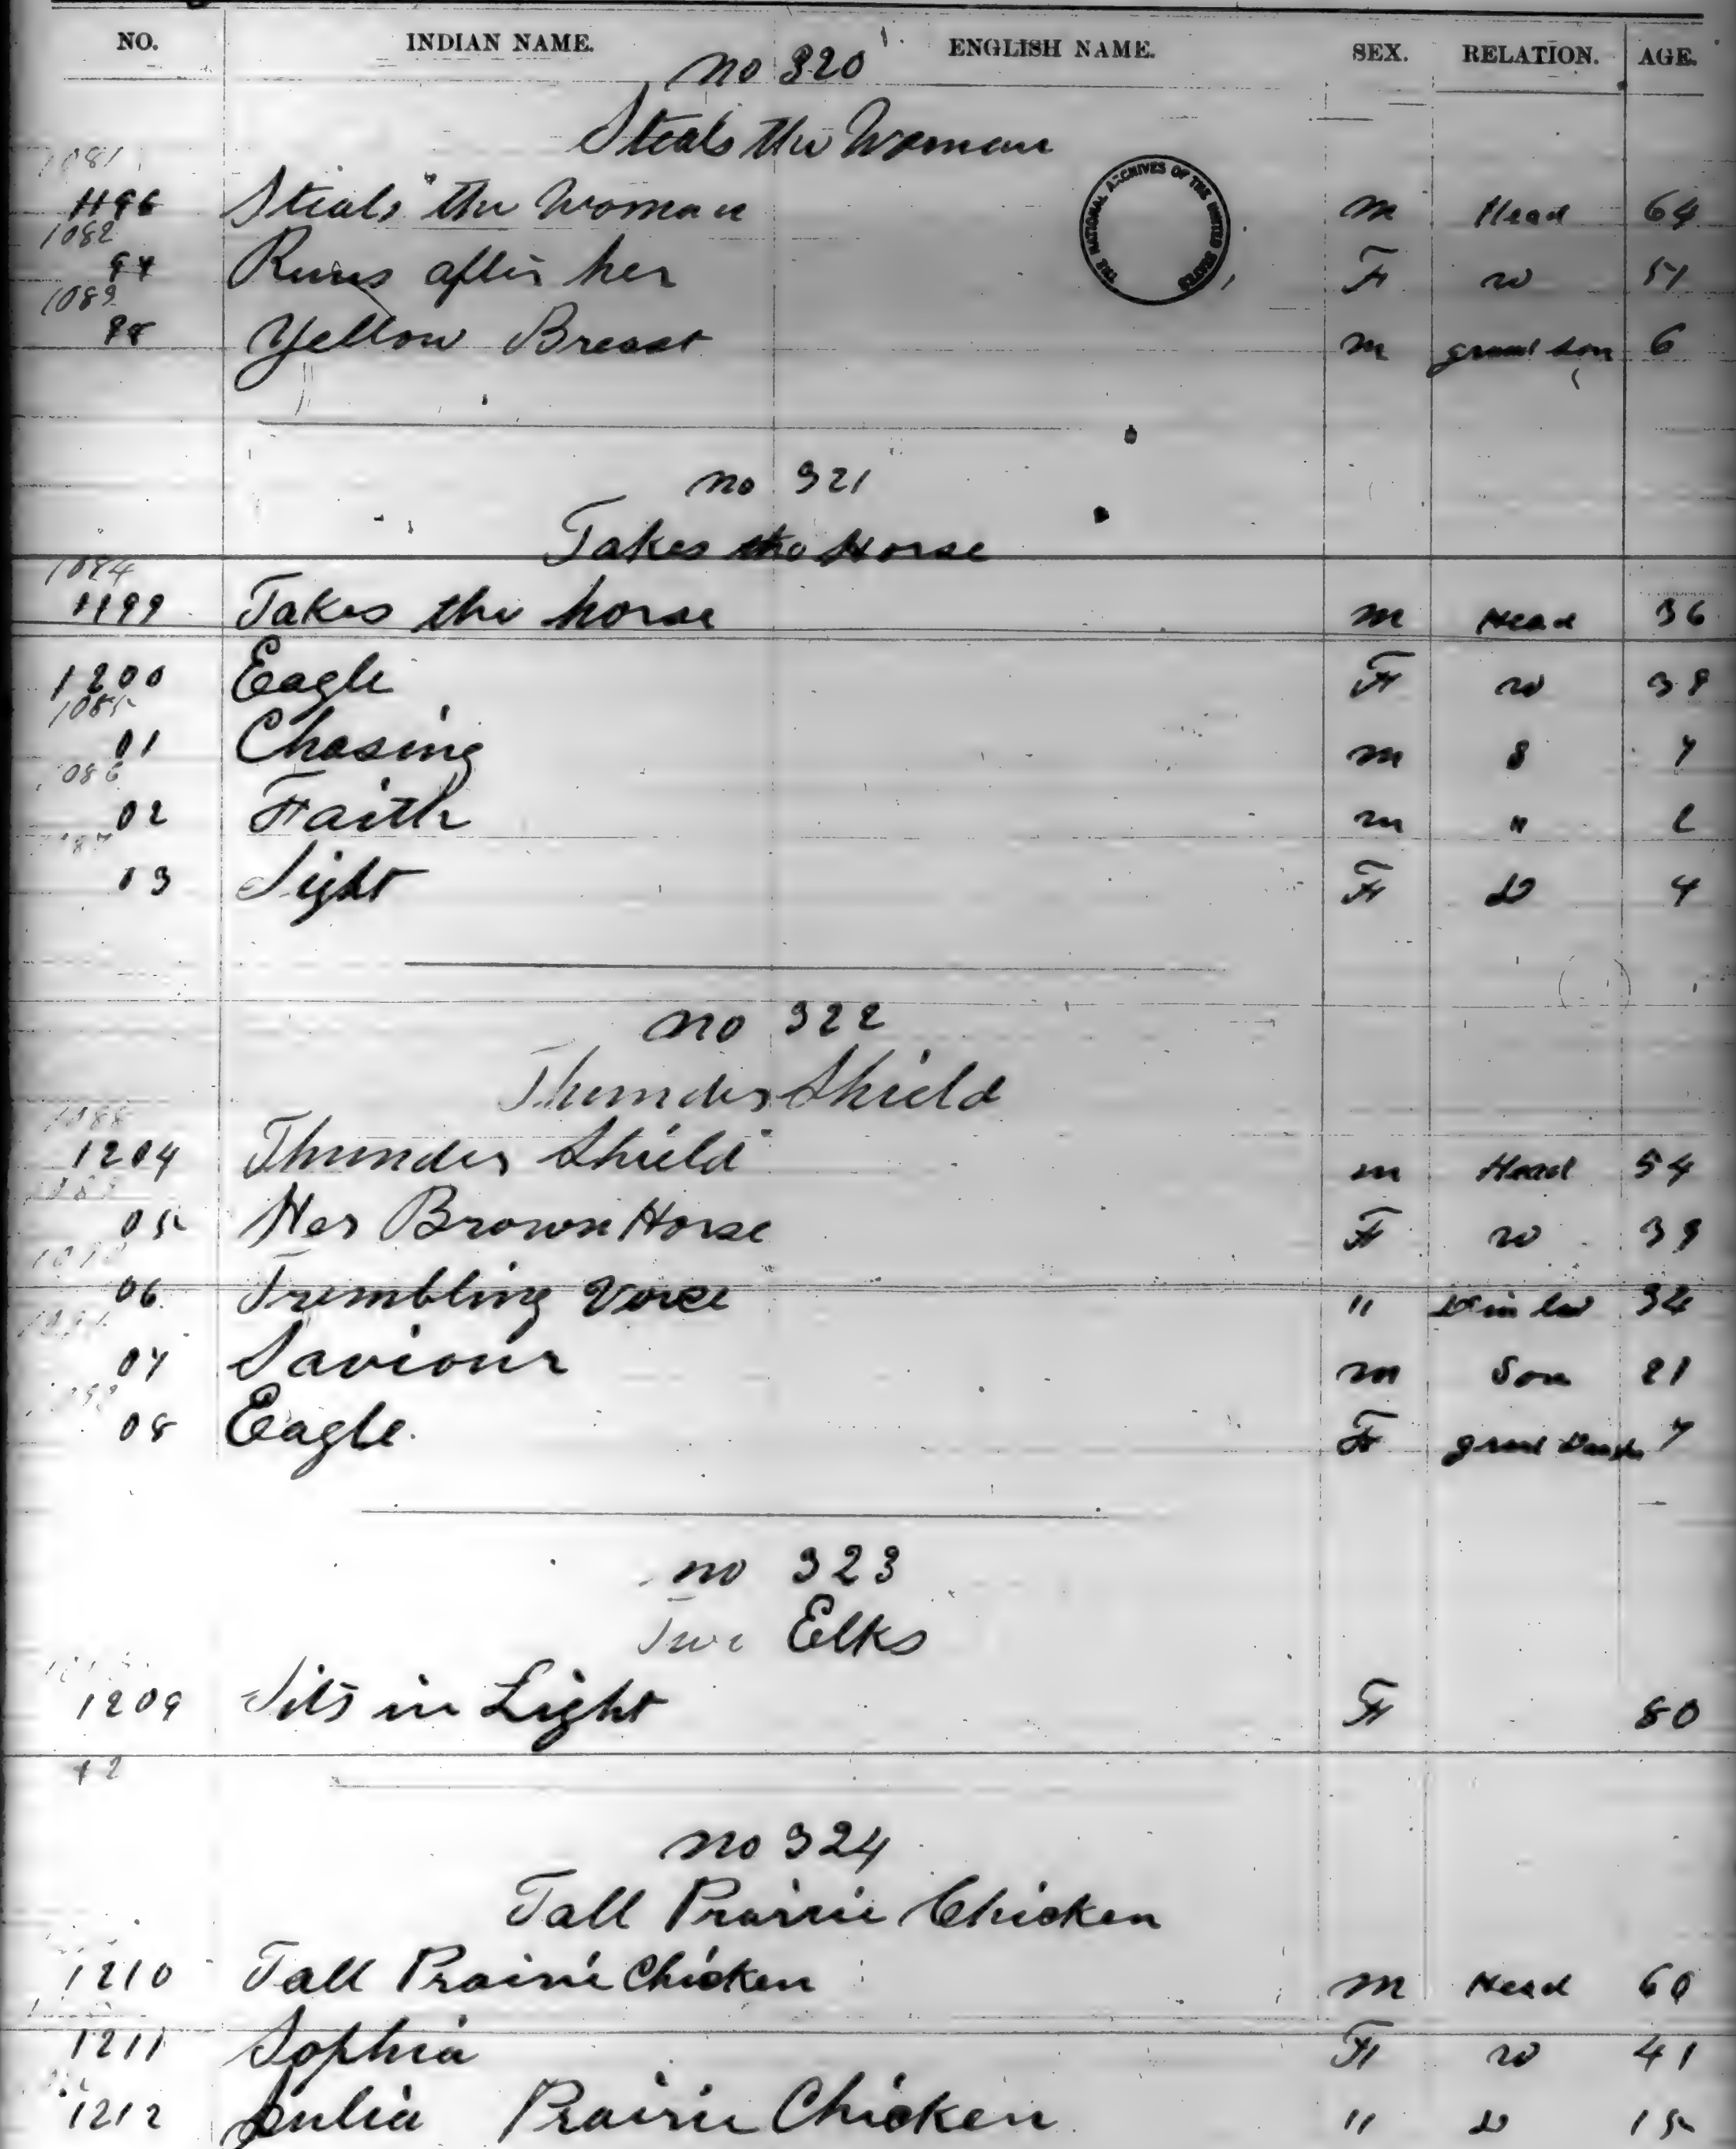 NO. INDIAN NAME. ENGLISH NAME. SEX. RELATION. AGE.
no 320
Steals the Woman
1081
1196 Steals the Woman m Head 64
1082
97 Runs after her F w 51
1083
98 Yellow Breast m grand son 6
THE NATIONAL ARCHIVES OF THE UNITED STATES
no 321
Takes the Horse
1084
1199 Takes the horse m Head 36
1200 Eagle F w 38
1085
01 Chasing m S 7
086
02 Faith m " 2
03 Light F D 4
no 322
Thunder Shield
1088
1204 Thunder Shield m Head 54
05 Her Brown Horse F w 39
06 Trembling Voice " D in law 34
07 Saviour m Son 21
08 Eagle. F grand Daugh 7
no 323
Two Elks
1209 Sits in Light F 80
no 324
Tall Prairie Chicken
1210 Tall Prairie Chicken m Head 60
1211 Sophia F w 41
1212 Julia Prairie Chicken " D 15